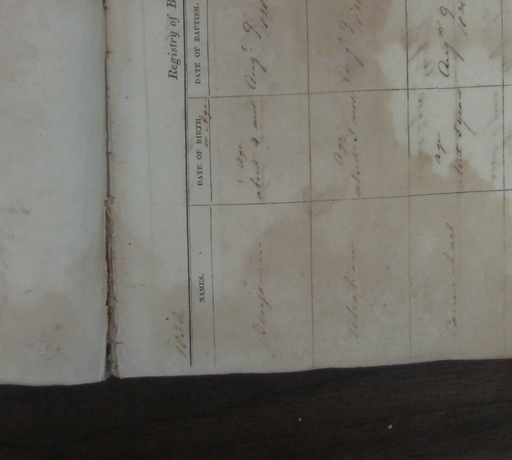 1838
Registry of B
NAMES.
DATE OF BIRTH,
or Age
DATE OF BAPTISM.
Benjamin
Age
about 4 mos
Augt 9
1838
Abraham
Age
about
mos
Augt 9
1838
Carmichael
age
about 5 years
Augt 9
1838